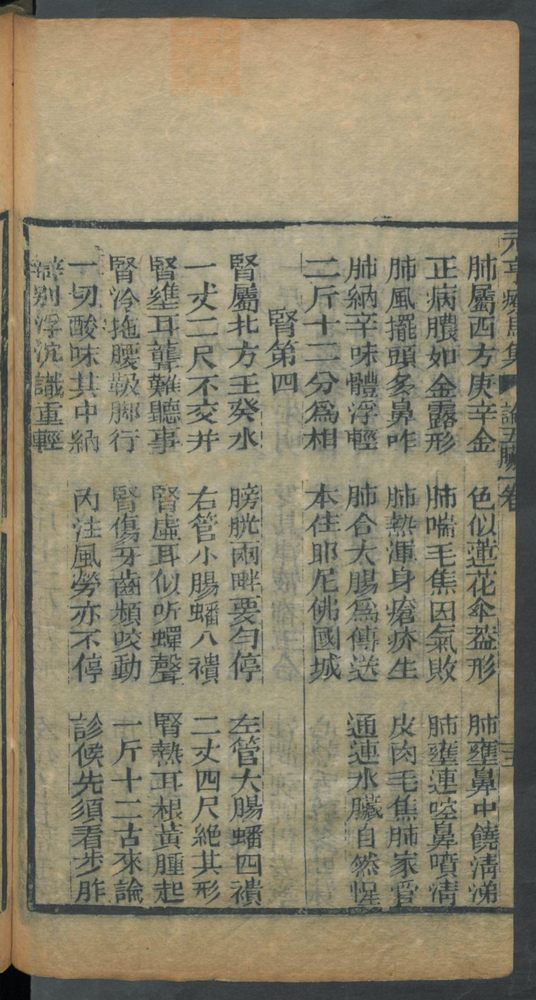 元亨療馬集 論五臟 卷一
肺屬西方庚辛金 色似蓮花傘蓋形 肺壅鼻中饒清涕
正病膿如金露形 肺喘毛焦因氣敗 肺壅連啌鼻噴清
肺風擺頭多鼻咋 肺熱渾身瘡疥生 皮肉毛焦肺家管
肺納辛味體浮輕 肺合大腸為傳送 通連水臟自然惺
二斤十二分為相 本住耶尼佛國城
腎第四
腎屬北方王癸水 膀胱兩畔要勻停 左管大腸蟠四䙡
一丈二尺不交并 右管小腸蟠八䙡 二丈四尺絕其形
腎壅耳聾難聽事 腎虛耳似听蟬聲 腎熱耳根黃腫起
腎冷拖腰靸脚行 腎傷牙齒頻咬動 一斤十二古來論
一切酸味其中納 內注風勞亦不停 診候先須看步胙
辯別浮沉識重輕